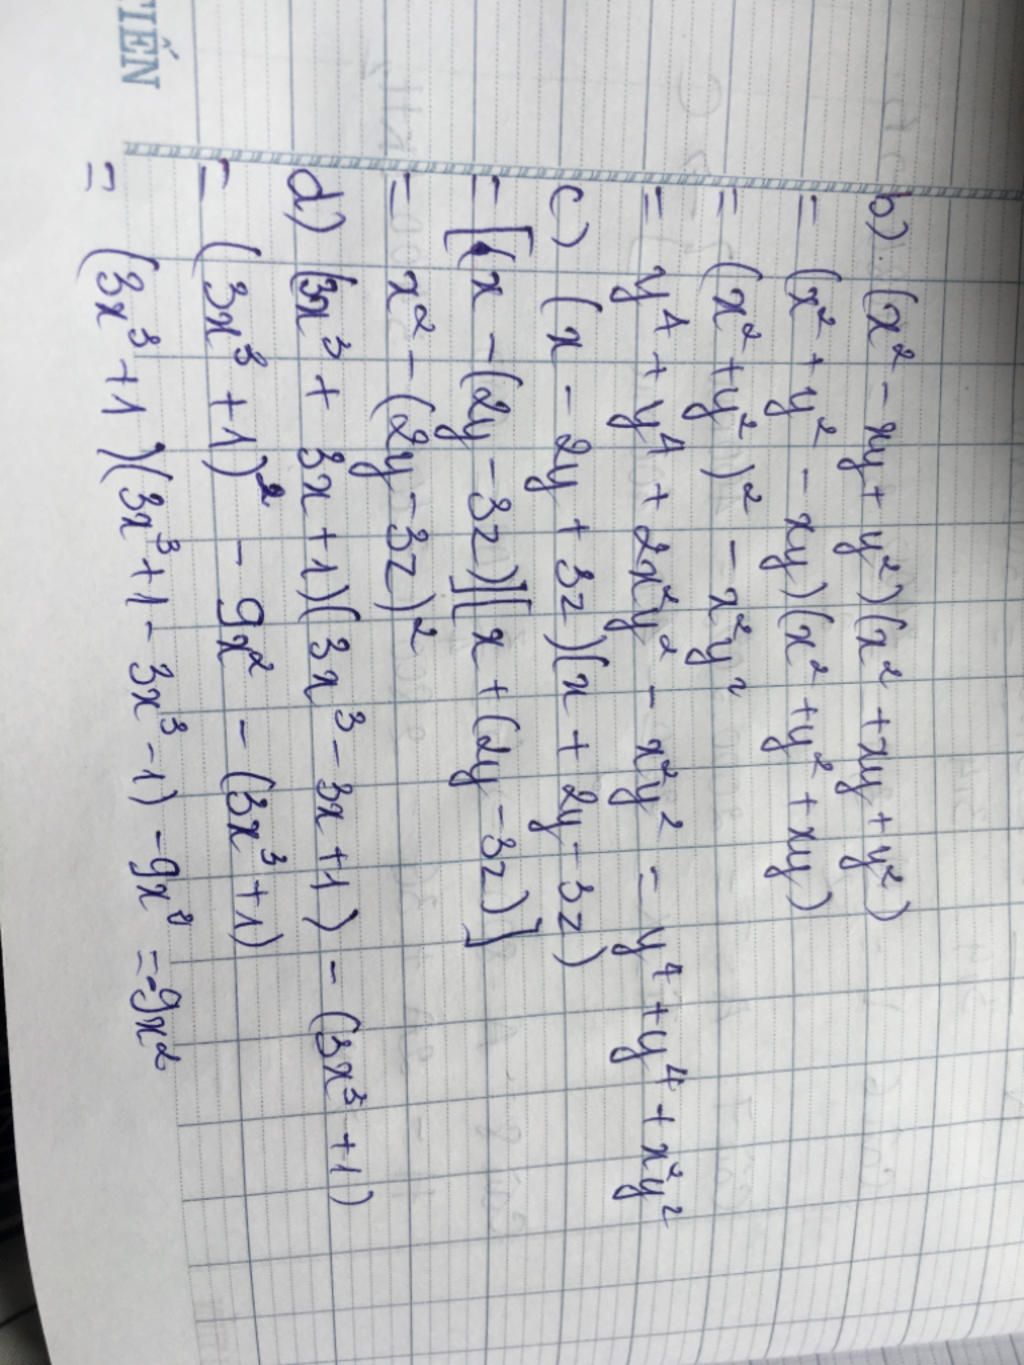 TIẾN
b) (x² - xy + y²)(x² + xy + y²)
= (x² + y² - xy)(x² + y² + xy)
= (x² + y²)² - x²y²
= y⁴ + y⁴ + 2x²y² - x²y² = y⁴ + y⁴ + x²y²
c) (x - 2y + 3z)(x + 2y - 3z)
= [(x - (2y - 3z)][x + (2y - 3z)]
= x² - (2y - 3z)²
d) (3x³ + 3x + 1)(3x³ - 3x + 1) - (3x³ + 1)
= (3x³ + 1)² - 9x² - (3x³ + 1)
= (3x³ + 1)(3x³ + 1 - 3x³ - 1) - 9x² = -9x²